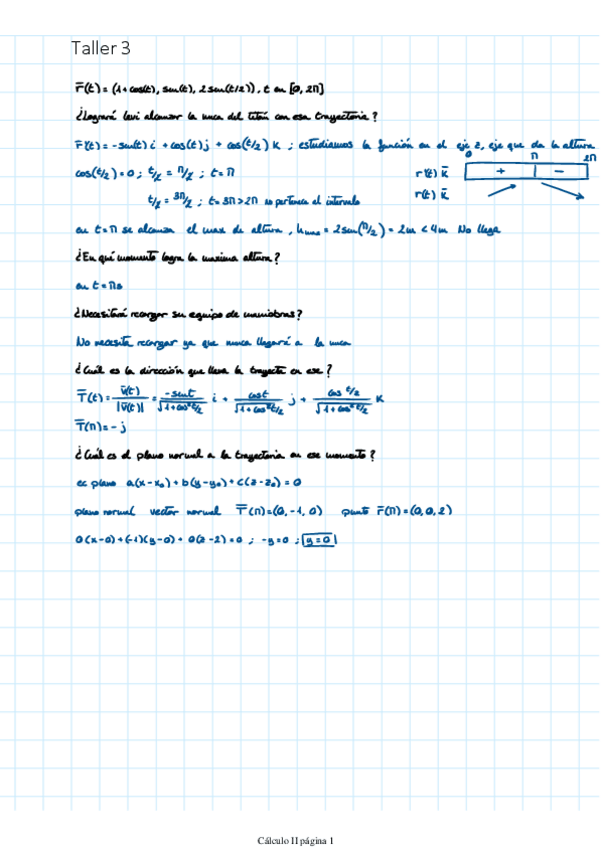 Taller 3
r̄(t) = (1+cos(t), sen(t), 2 sen(t/2)), t en [0, 2π]
¿Logrará Levi alcanzar la nuca del titán con esa trayectoria?
r̄'(t) = -sen(t) i + cos(t) j + cos(t/2) k ; estudiamos la función en el eje z, eje que da la altura
0 π 2π
cos(t/2) = 0 ; t/2 = π/2 ; t = π
r'(t) k̄ + -
r(t) k̄
t/2 = 3π/2 ; t = 3π > 2π no pertenece al intervalo
en t = π se alcanza el max de altura, hmax = 2 sen(π/2) = 2m < 4m No llega
¿En qué momento logra la maxima altura?
en t = πs
¿Necesitará recargar su equipo de maniobras?
No necesita recargar ya que nunca llegará a la nuca
¿Cuál es la dirección que lleva la trayecta en ese?
T̄(t) = v̄(t)/|v̄(t)| = -sent/√(1+cos²t/2) i + cost/√(1+cos²t/2) j + cos t/2/√(1+cos²t/2) k
T̄(π) = - j
¿Cuál es el plano normal a la trayectoria en ese momento?
ec plano a(x-x₀) + b(y-y₀) + c(z-z₀) = 0
plano normal vector normal T̄(π) = (0, -1, 0) punto r̄(π) = (0, 0, 2)
0(x-0) + (-1)(y-0) + 0(z-2) = 0 ; -y = 0 ; y = 0
Cálculo II página 1